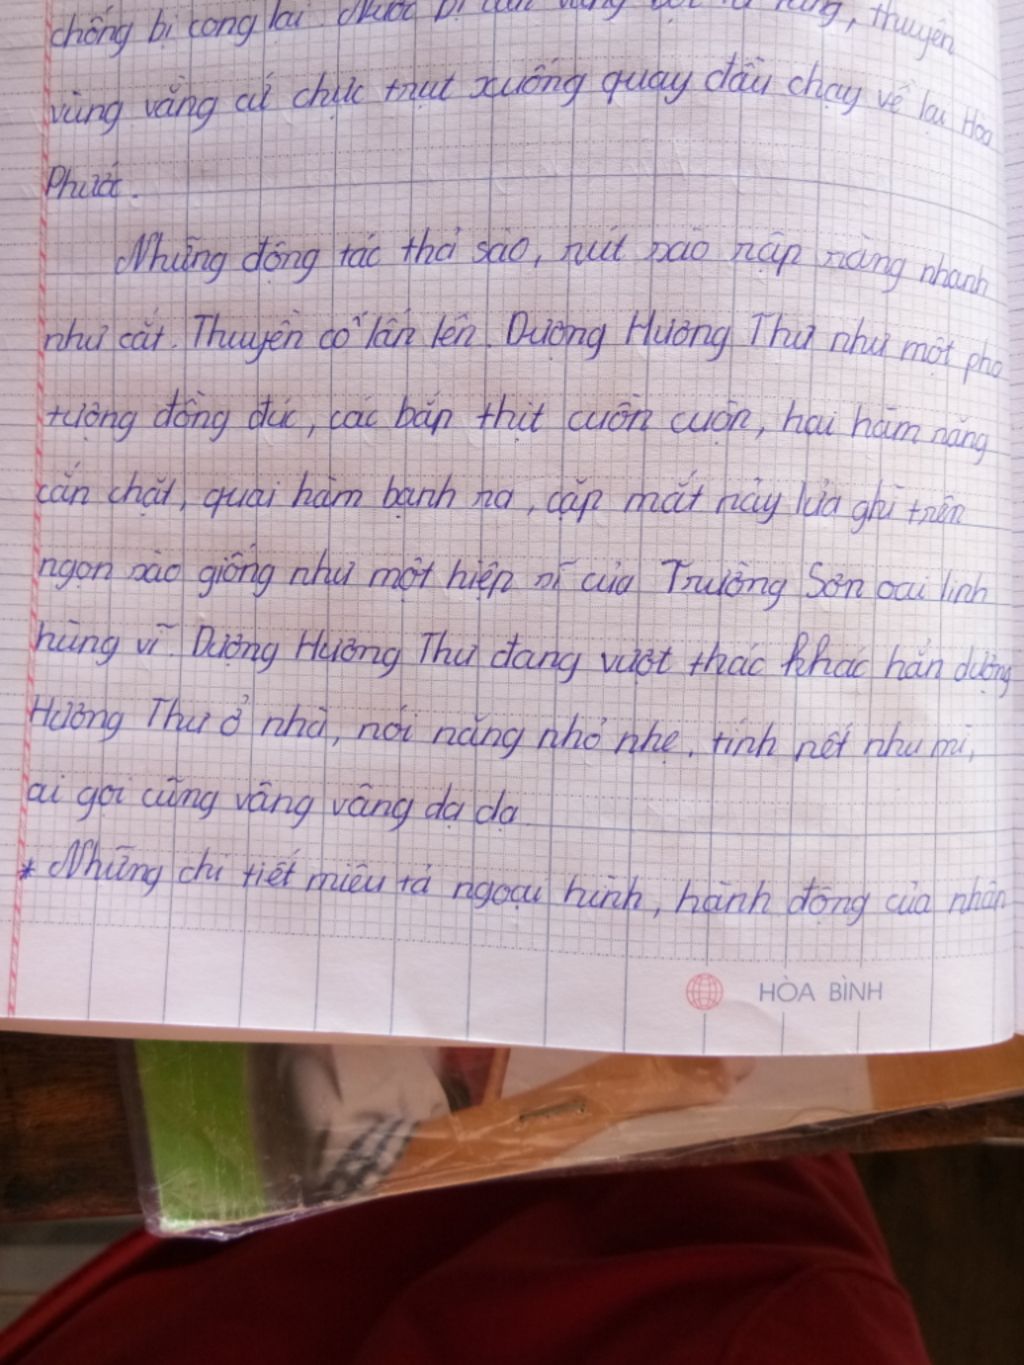 chống bị cong lại. Nước bị cản văng bọt tứ tung, thuyền
vùng vằng cứ chực trụt xuống quay đầu chạy về lại Hòa
Phước.
Những động tác thả sào, rút sào rập ràng nhanh
như cắt. Thuyền cố lấn lên. Dượng Hương Thư như một pho
tượng đồng đúc, các bắp thịt cuồn cuộn, hai hàm răng
cắn chặt, quai hàm bạnh ra, cặp mắt nảy lửa ghì trên
ngọn sào giống như một hiệp sĩ của Trường Sơn oai linh
hùng vĩ. Dượng Hương Thư đang vượt thác khác hẳn dượng
Hương Thư ở nhà, nói năng nhỏ nhẹ, tính nết nhu mì,
ai gọi cũng vâng vâng dạ dạ
* Những chi tiết miêu tả ngoại hình, hành động của nhân
HÒA BÌNH